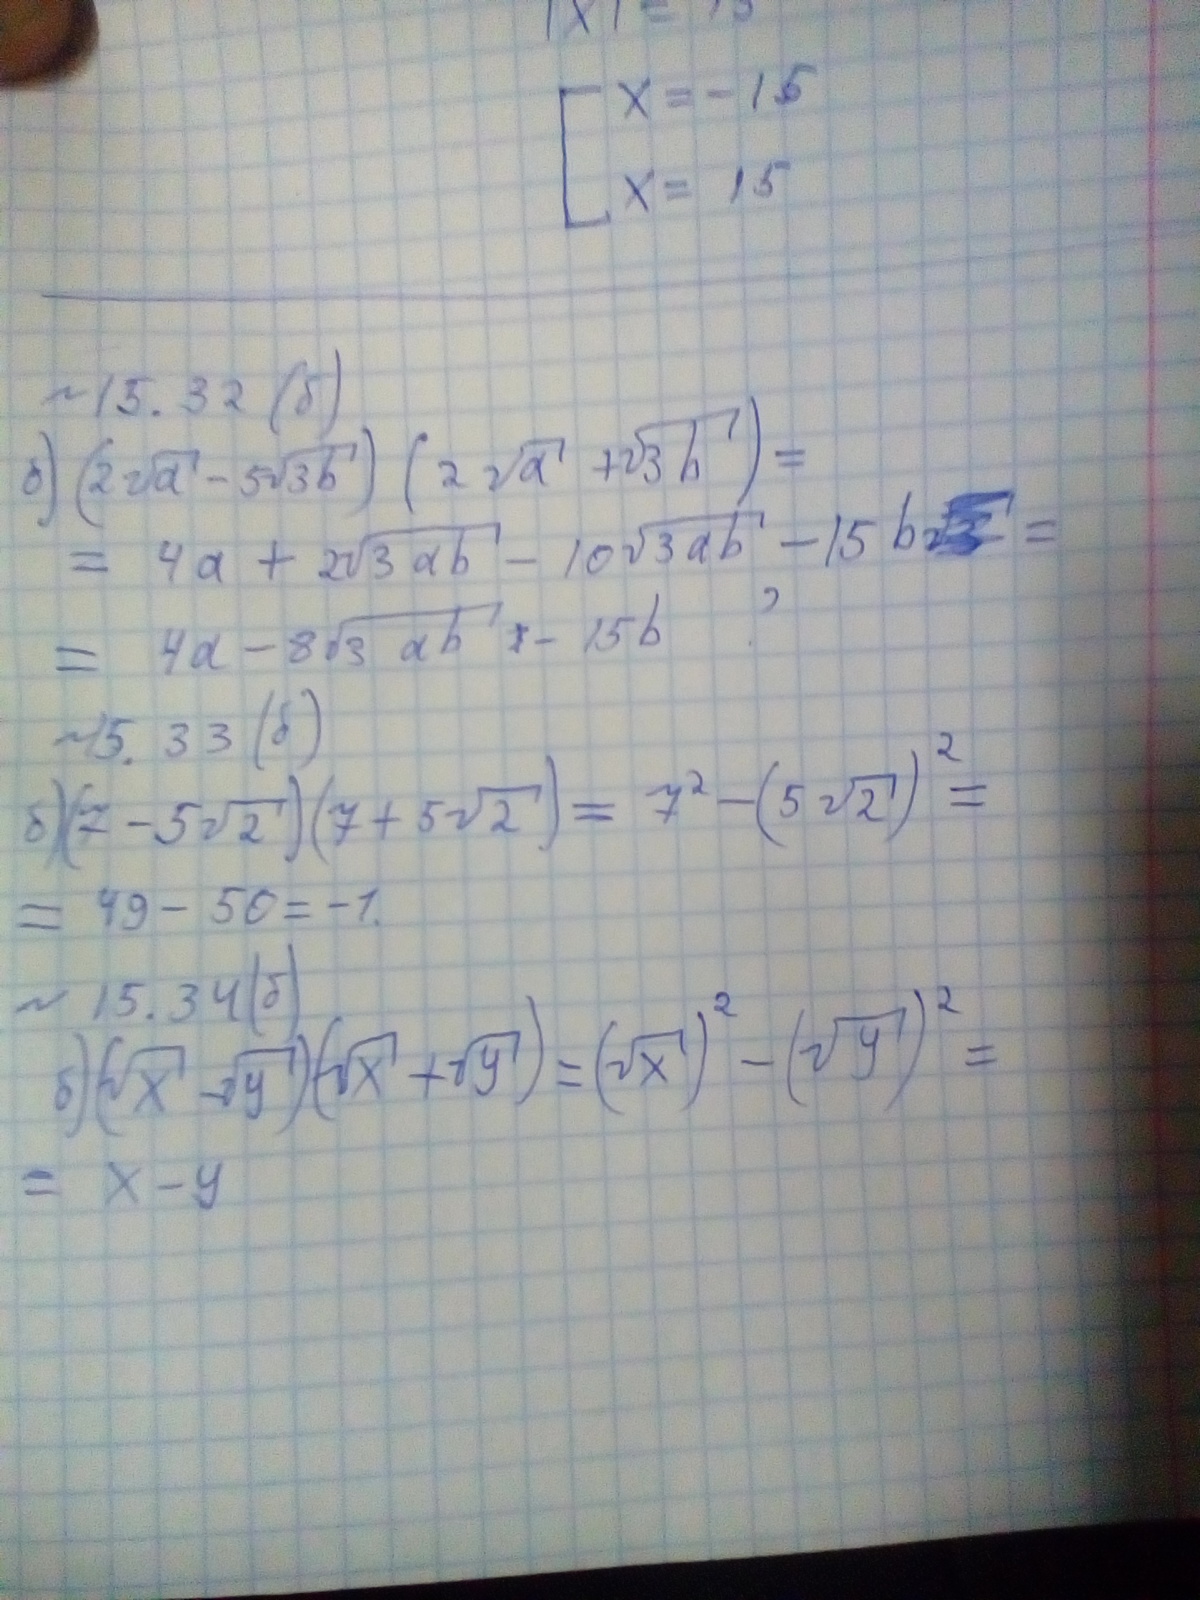 |x| = 15
x = -15
x = 15
~15.32 (б)
б) (2√a - 5√3b) (2√a + √3b) =
= 4a + 2√3ab - 10√3ab - 15b =
= 4a - 8√3ab - 15b ?
~15.33 (б)
б) (7 - 5√2)(7 + 5√2) = 7² - (5√2)² =
= 49 - 50 = -1.
~ 15.34 (б)
б) (√x - √y)(√x + √y) = (√x)² - (√y)² =
= x - y